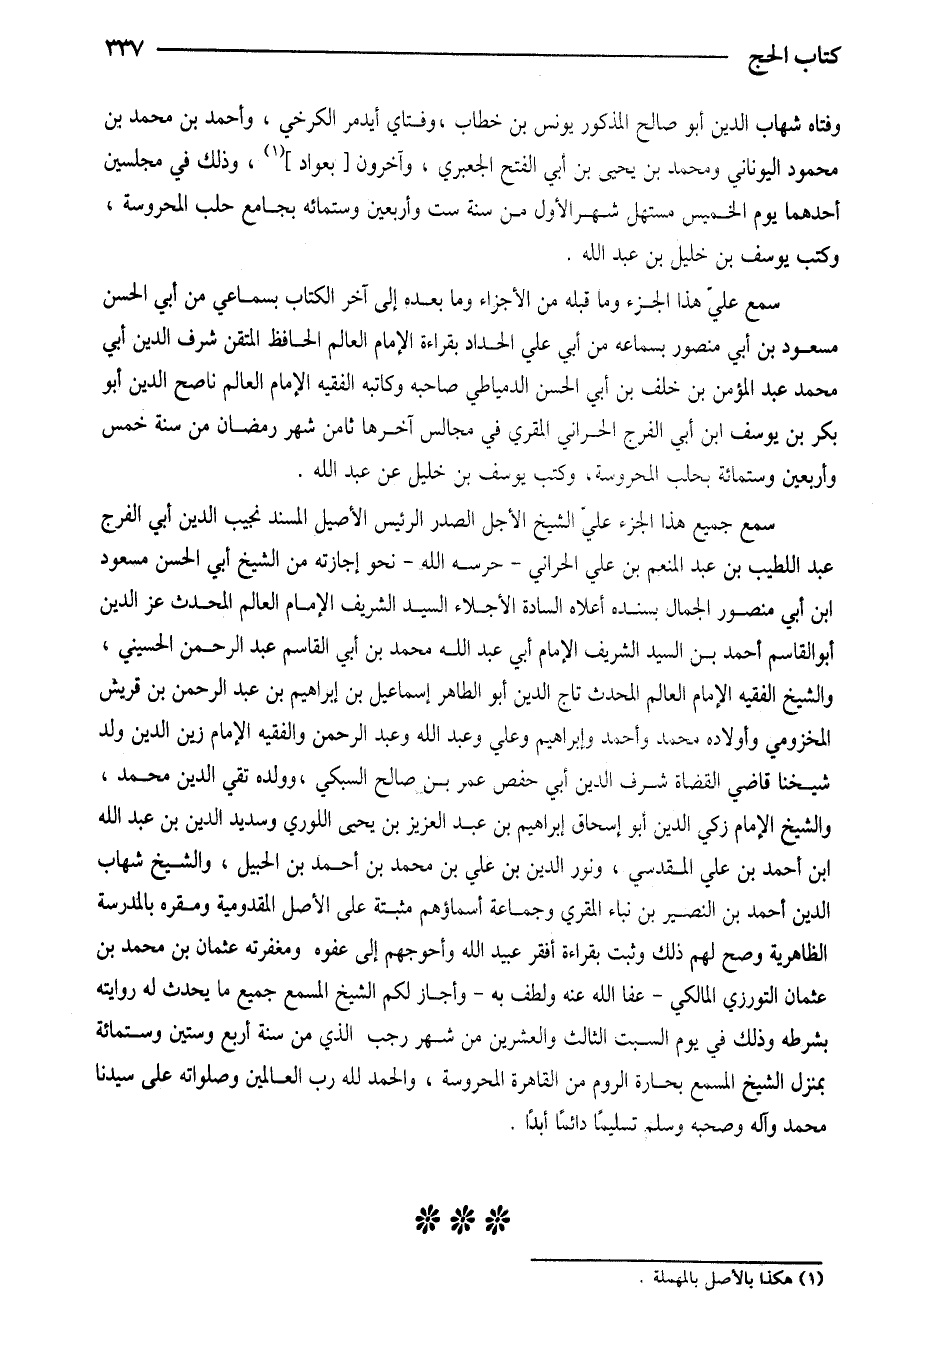 كتاب الحج ٣٣٧
وفتاه شهاب الدين أبو صالح المذكور يونس بن خطاب ، وفتاي أيدمر الكرخي ، وأحمد بن محمد بن
محمود اليوناني ومحمد بن يحيى بن أبي الفتح الجعبري ، وآخرون [ بعواد ](١) ، وذلك في مجلسين
أحدهما يوم الخميس مستهل شهر الأول من سنة ست وأربعين وستمائه بجامع حلب المحروسة ،
وكتب يوسف بن خليل بن عبد الله .
سمع عليّ هذا الجزء وما قبله من الأجزاء وما بعده إلى آخر الكتاب بسماعي من أبي الحسن
مسعود بن أبي منصور بسماعه من أبي علي الحداد بقراءة الإمام العالم الحافظ المتقن شرف الدين أبي
محمد عبد المؤمن بن خلف بن أبي الحسن الدمياطي صاحبه وكاتبه الفقيه الإمام العالم ناصح الدين أبو
بكر بن يوسف ابن أبي الفرج الحراني المقري في مجالس آخرها ثامن شهر رمضان من سنة خمس
وأربعين وستمائة بحلب المحروسة ، وكتب يوسف بن خليل عن عبد الله .
سمع جميع هذا الجزء عليّ الشيخ الأجل الصدر الرئيس الأصيل المسند نجيب الدين أبي الفرج
عبد اللطيب بن عبد المنعم بن علي الحراني - حرسه الله - نحو إجازته من الشيخ أبي الحسن مسعود
ابن أبي منصور الجمال بسنده أعلاه السادة الأجلاء السيد الشريف الإمام العالم المحدث عز الدين
أبوالقاسم أحمد بن السيد الشريف الإمام أبي عبد الله محمد بن أبي القاسم عبد الرحمن الحسيني ،
والشيخ الفقيه الإمام العالم المحدث تاج الدين أبو الطاهر إسماعيل بن إبراهيم بن عبد الرحمن بن قريش
المخزومي وأولاده محمد وأحمد وإبراهيم وعلي وعبد الله وعبد الرحمن والفقيه الإمام زين الدين ولد
شيخنا قاضي القضاة شرف الدين أبي حفص عمر بن صالح السبكي ، وولده تقي الدين محمد ،
والشيخ الإمام زكي الدين أبو إسحاق إبراهيم بن عبد العزيز بن يحيى اللوري وسديد الدين بن عبد الله
ابن أحمد بن علي المقدسي ، ونور الدين بن علي بن محمد بن أحمد بن الجبيل ، والشيخ شهاب
الدين أحمد بن النصير بن نباء المقري وجماعة أسماؤهم مثبتة على الأصل المقدومية ومقره بالمدرسة
الظاهرية وصح لهم ذلك وثبت بقراءة أفقر عبيد الله وأحوجهم إلى عفوه ومغفرته عثمان بن محمد بن
عثمان التورزي المالكي - عفا الله عنه ولطف به - وأجاز لكم الشيخ المسمع جميع ما يحدث له روايته
بشرطه وذلك في يوم السبت الثالث والعشرين من شهر رجب الذي من سنة أربع وستين وستمائة
بمنزل الشيخ المسمع بحارة الروم من القاهرة المحروسة ، والحمد لله رب العالمين وصلواته على سيدنا
محمد وآله وصحبه وسلم تسليمًا دائمًا أبدًا .
(١) هكذا بالأصل بالمهملة .